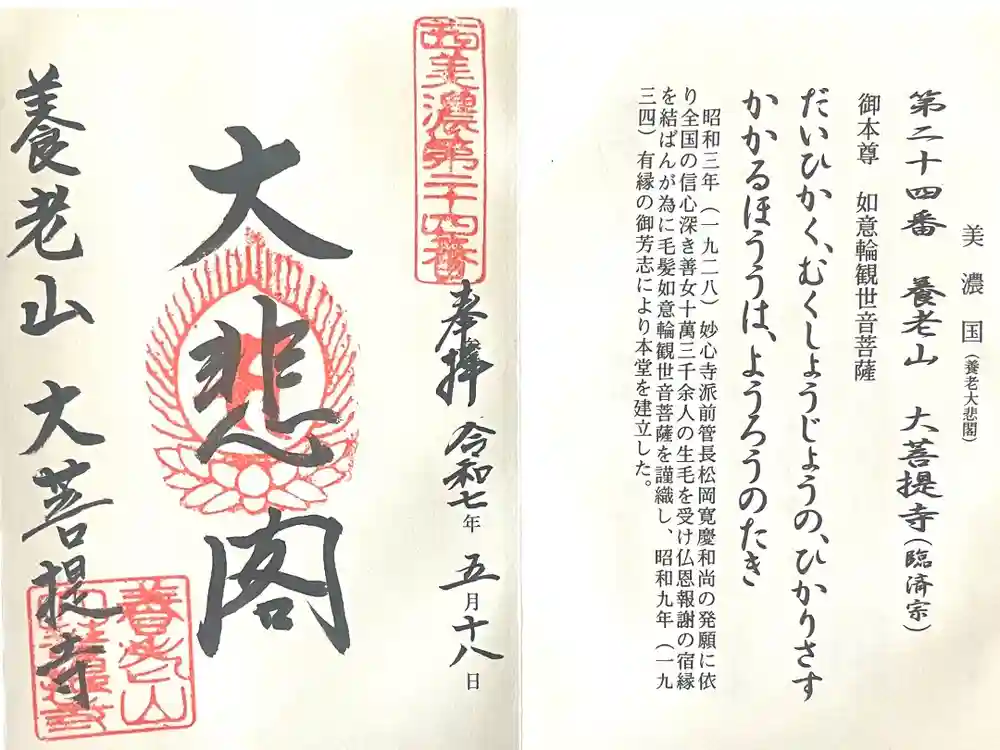 美濃国（養老大悲閣）
第二十四番　養老山　大菩提寺（臨済宗）
御本尊　如意輪観世音菩薩
だいひかく、むくしょうじょうの、ひかりさす
かかるほううは、ようろうのたき
昭和三年（一九二八）妙心寺派前管長松岡寛慶和尚の発願に依
り全国の信心深き善女十萬三千余人の生毛を受け仏恩報謝の宿縁
を結ばんが為に毛髪如意輪観世音菩薩を謹織し、昭和九年（一九
三四）有縁の御芳志により本堂を建立した。
西美濃第二十四番
奉拝　令和七年　五月十八日
大悲閣
養老山　大菩提寺
養老山